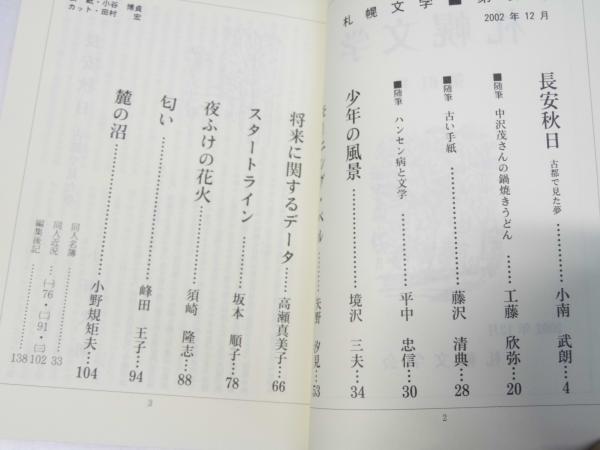 札幌文学■第
2002年12月
長安秋日 古都で見た夢………小南 武朗…4
■随筆 中沢茂さんの鍋焼きうどん………工藤 欣弥…20
■随筆 古い手紙………藤沢 清典…28
■随筆 ハンセン病と文学………平中 忠信…30
少年の風景………境沢 三夫…34
矢野 汐見…53
将来に関するデータ………高瀬真美子…66
スタートライン………坂本 順子…78
夜ふけの花火………須崎 隆志…88
匂い………峰田 王子…94
麓の沼………小野規矩夫…104
同人名簿………33
同人近況…(一)76・(二)91・(三)102
編集後記………138
小谷 博貞
カット・田村 宏
2
3